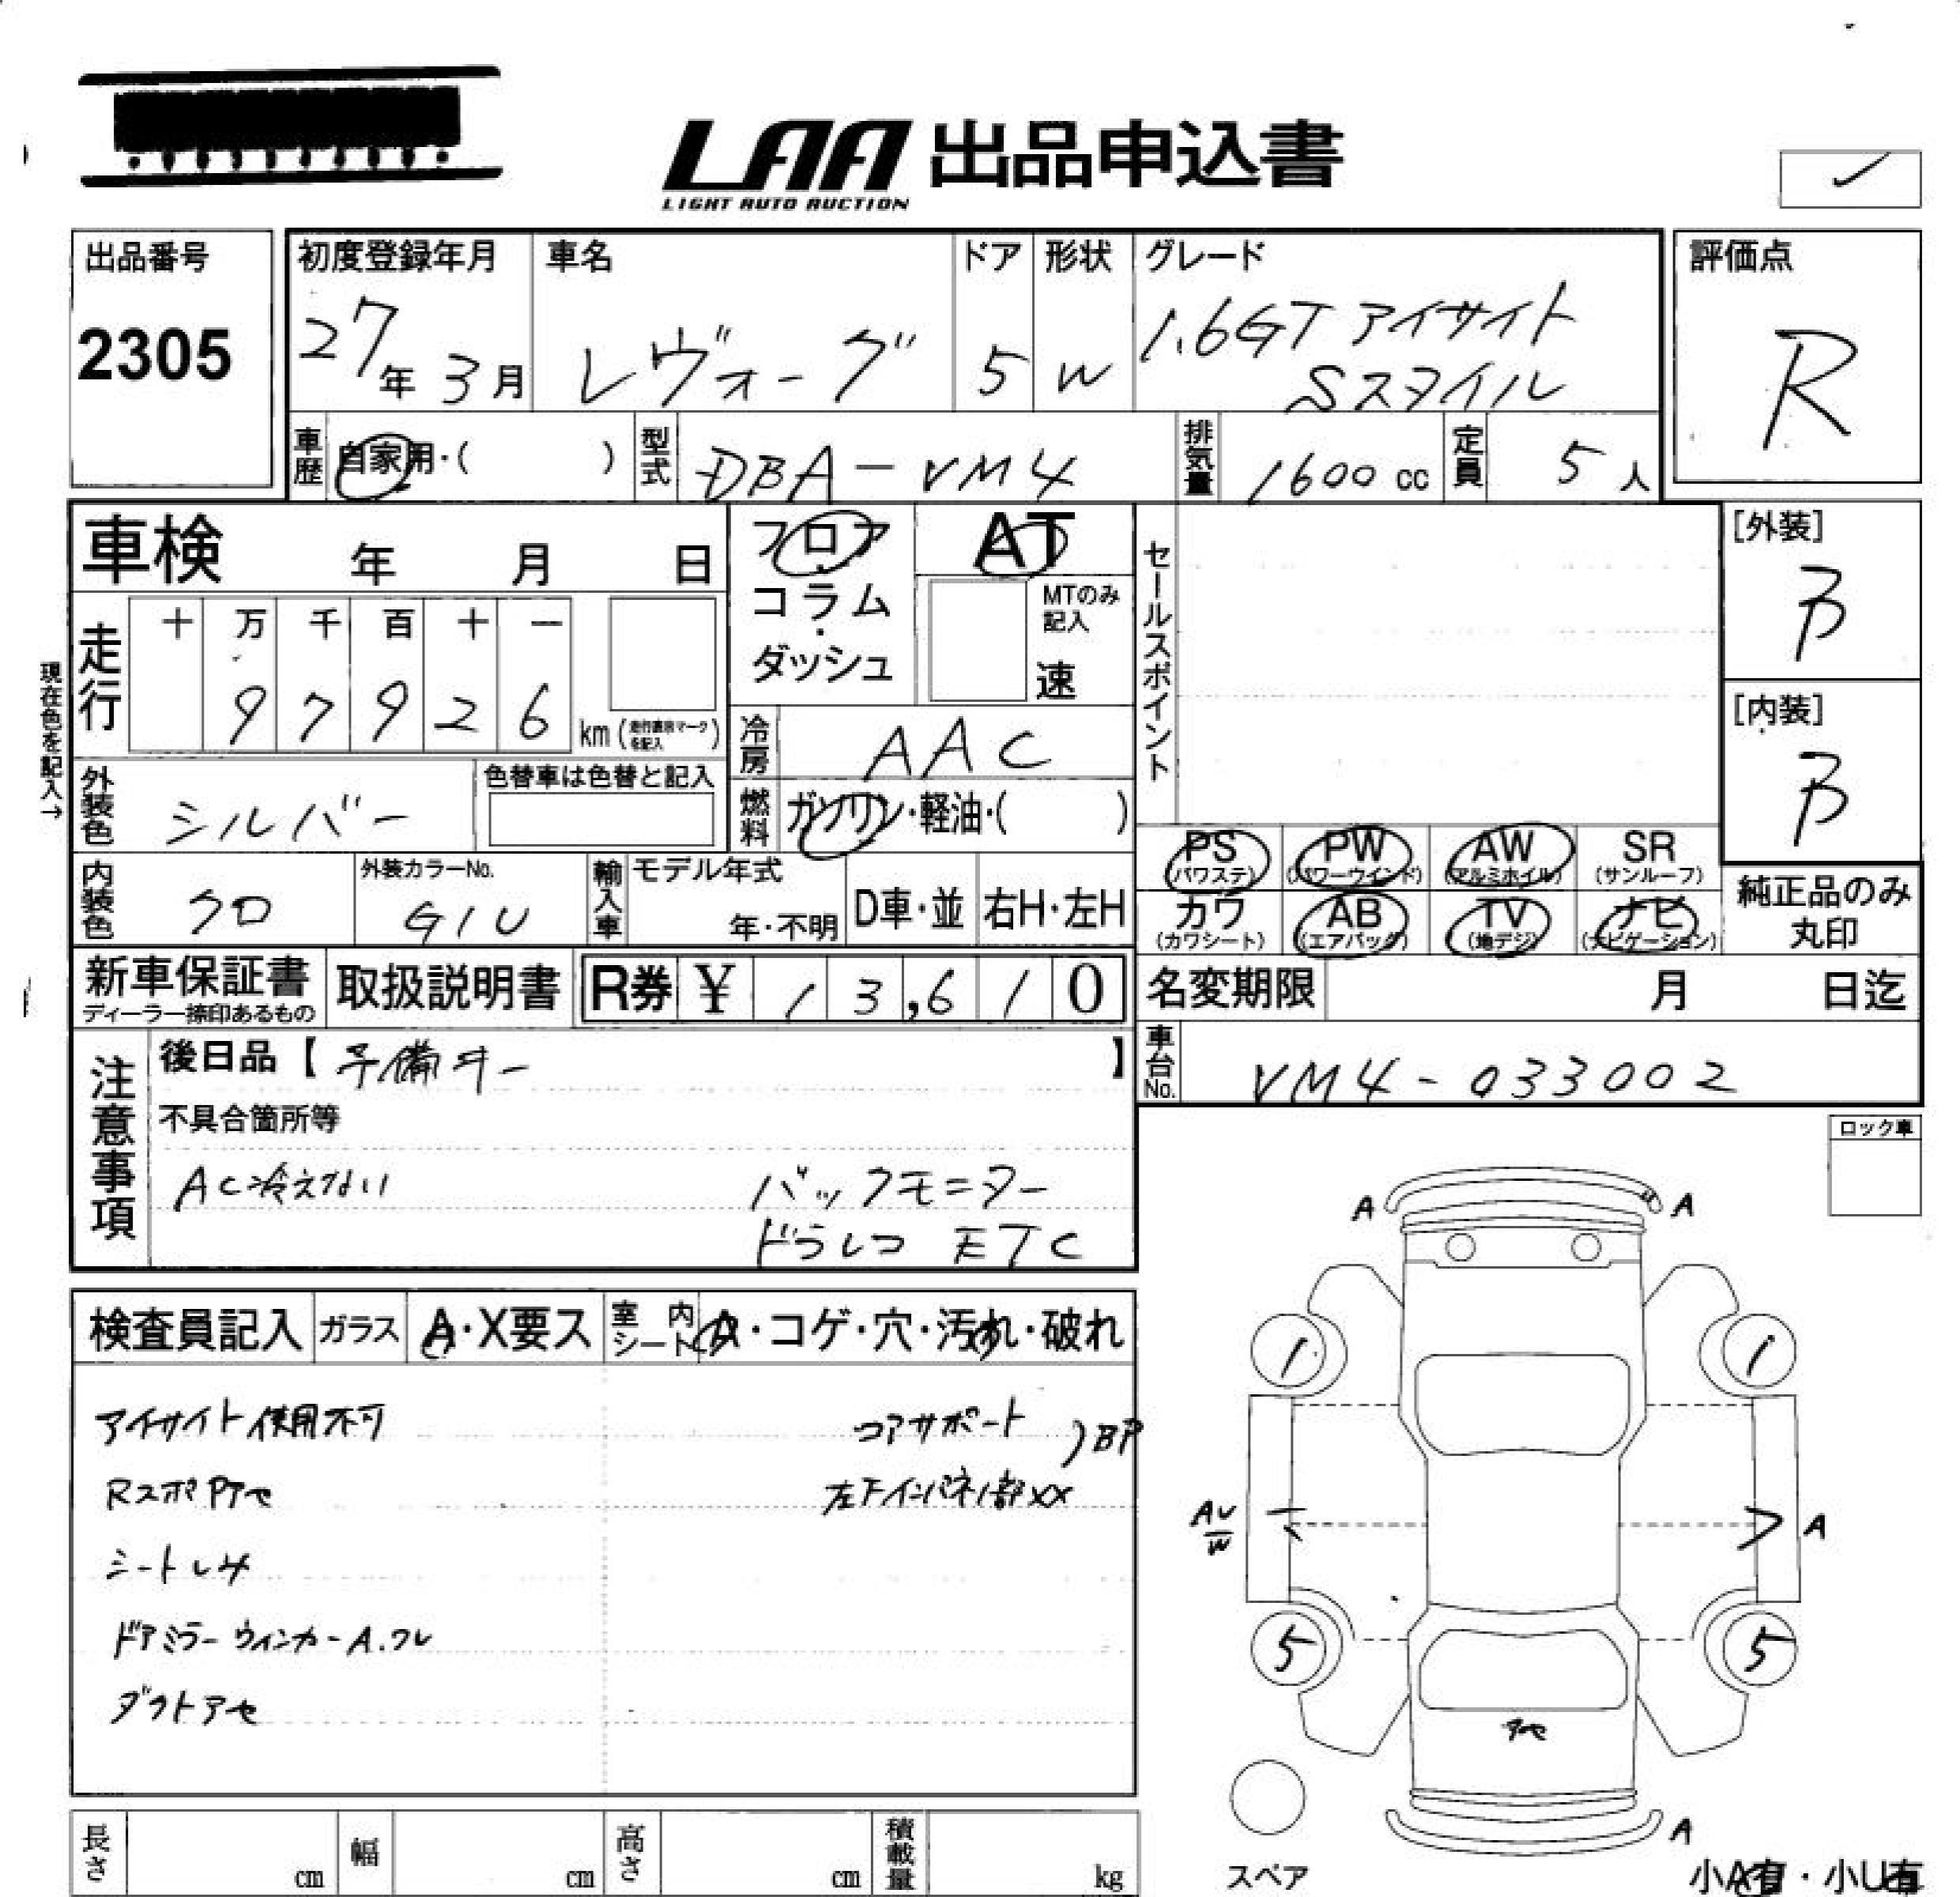 LAA 出品申込書
LIGHT AUTO AUCTION
出品番号
2305
初度登録年月
27年 3月
車名
レヴォーグ
ドア
5
形状
W
グレード
1.6GT アイサイト
Sスタイル
評価点
R
車歴
自家用・( )
型式
DBA-VM4
排気量
1600 cc
定員
5 人
車検 年 月 日
フロア
・
コラム
・
ダッシュ
AT
MTのみ記入
速
セールスポイント
[外装]
B
[内装]
B
現在色を記入→
走行
十 万 千 百 十 一
9 7 9 2 6
km (走行表示マークを記入)
冷房
AAC
燃料
ガソリン・軽油・( )
外装色
シルバー
色替車は色替と記入
内装色
クロ
外装カラーNo.
G1U
輸入車
モデル年式
年・不明
D車・並
右H・左H
PS
(パワステ)
PW
(パワーウインド)
AW
(アルミホイル)
SR
(サンルーフ)
カワ
(カワシート)
AB
(エアバッグ)
TV
(地デジ)
ナビ
(ナビゲーション)
純正品のみ
丸印
新車保証書
ディーラー捺印あるもの
取扱説明書
R券 ¥ 13,610
名変期限 月 日迄
車台No.
VM4-033002
注意事項
後日品【 予備キー 】
不具合箇所等
AC冷えない バックモニター
ドラレコ ETC
ロック車
検査員記入
ガラス
A・X要ス
室内シート
A・コゲ・穴・汚れ・破れ
アイサイト使用不可 コアサポート
)BP
RスポPアセ 左下インパネ1部XX
シートしみ
ドアミラーウィンカーA.ワレ
ダクトアセ
A A
1 1
AU
W
A
5 5
アセ
A
スペア
小A有・小U有
長さ cm
幅 cm
高さ cm
積載量 kg